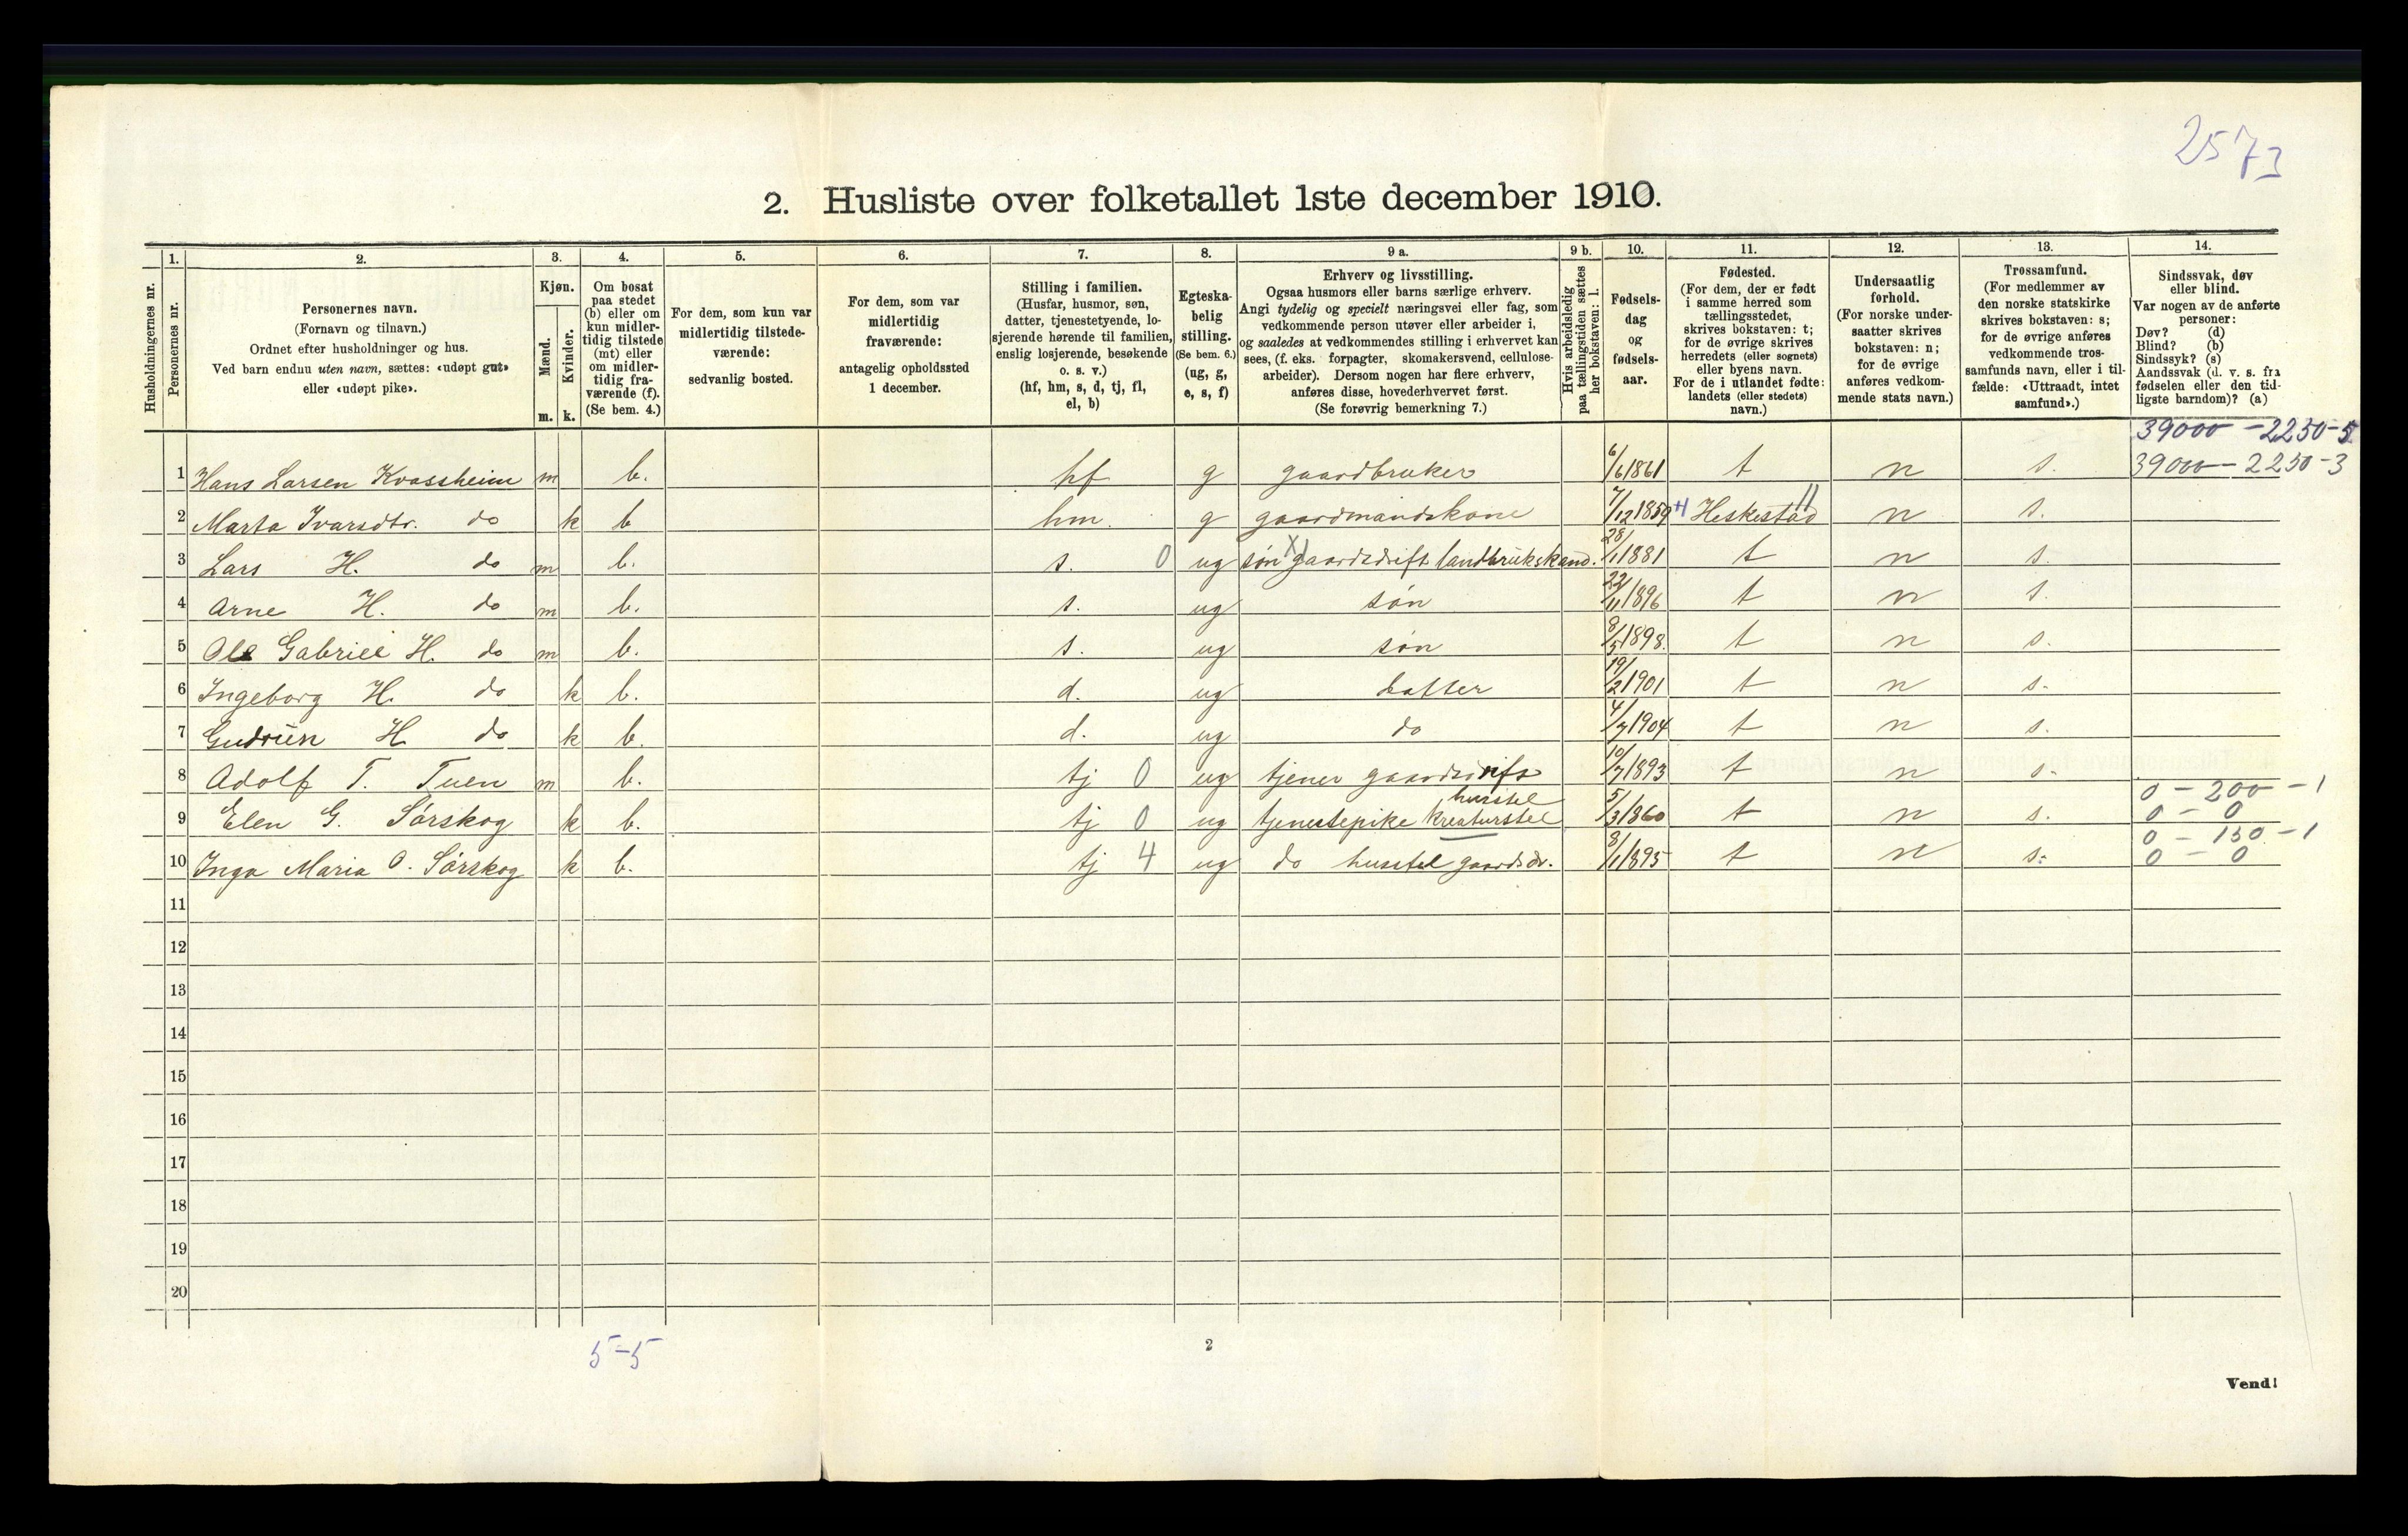 2573
2. Husliste over folketallet 1ste december 1910.
Husholdningernes nr.
1.
Personernes nr.
2.
Personernes navn.
(Fornavn og tilnavn.)
Ordnet efter husholdninger og hus.
Ved barn endnu uten navn, sættes: «udøpt gut»
eller «udøpt pike».
3.
Kjøn.
Mænd.
Kvinder.
m. k.
4.
Om bosat
paa stedet
(b) eller om
kun midler-
tidig tilstede
(mt) eller
om midler-
tidig fra-
værende (f).
(Se bem. 4.)
5.
For dem, som kun var
midlertidig tilstede-
værende:
sedvanlig bosted.
6.
For dem, som var
midlertidig
fraværende:
antagelig opholdssted
1 december.
7.
Stilling i familien.
(Husfar, husmor, søn,
datter, tjenestetyende, lo-
sjerende hørende til familien,
enslig losjerende, besøkende
o. s. v.)
(hf, hm, s, d, tj, fl,
el, b)
8.
Egteska-
belig
stilling.
(Se bem. 6.)
(ug, g,
e, s, f)
9 a.
Erhverv og livsstilling.
Ogsaa husmors eller barns særlige erhverv.
Angi tydelig og specielt næringsvei eller fag, som
vedkommende person utøver eller arbeider i,
og saaledes at vedkommendes stilling i erhvervet kan
sees, (f. eks. forpagter, skomakersvend, cellulose-
arbeider). Dersom nogen har flere erhverv,
anføres disse, hovederhvervet først.
(Se forøvrig bemerkning 7.)
9 b.
Hvis arbeidsledig
paa tællingstiden sættes
her bokstaven: l.
10.
Fødsels-
dag
og
fødsels-
aar.
11.
Fødested.
(For dem, der er født
i samme herred som
tællingsstedet,
skrives bokstaven: t;
for de øvrige skrives
herredets (eller sognets)
eller byens navn.
For de i utlandet fødte:
landets (eller stedets)
navn.)
12.
Undersaatlig
forhold.
(For norske under-
saatter skrives
bokstaven: n;
for de øvrige
anføres vedkom-
mende stats navn.)
13.
Trossamfund.
(For medlemmer av
den norske statskirke
skrives bokstaven: s;
for de øvrige anføres
vedkommende tros-
samfunds navn, eller i til-
fælde: «Uttraadt, intet
samfund».)
14.
Sindssvak, døv
eller blind.
Var nogen av de anførte
personer:
Døv? (d)
Blind? (b)
Sindssyk? (s)
Aandssvak (d. v. s. fra
fødselen eller den tid-
ligste barndom)? (a)
39000 - 2250 - 5
1 Hans Larsen Kvassheim m b. hf g gaardbruker 6/6 1861 t n s. 39000 - 2250 - 3
2 Marta Ivarsdtr. do k b hm. g gaardmandskone 7/12 1859 4 Heskestad 11 n s.
3 Lars H. do m b. s. 0 ug søn gaardsdrift landbrukskand. 28/1 1881 t n s.
4 Arne H. do m b. s. ug søn 22/11 1896 t n s.
5 Ole Gabriel H. do m b. s. ug søn 8/5 1898. t n s.
6 Ingeborg H. do k b. d. ug datter 19/2 1901 t n s.
7 Gudrun H. do k b. d. ug do 4/7 1904 t n s.
8 Adolf T. Tuen m b. tj 0 ug tjener gaardsdrift 10/7 1893 t n s.
husstel 0 - 200 - 1
9 Elen G. Sørskog k b. tj 0 ug tjenestepike kreaturstel 5/3 1860 t n s. 0 - 0
0 - 150 - 1
10 Inga Maria O. Sørskog k b. tj 4 ug do husstel gaardsdr. 8/1 1895 t n s. 0 - 0
11
12
13
14
15
16
17
18
19
20
5-5
2
Vend!